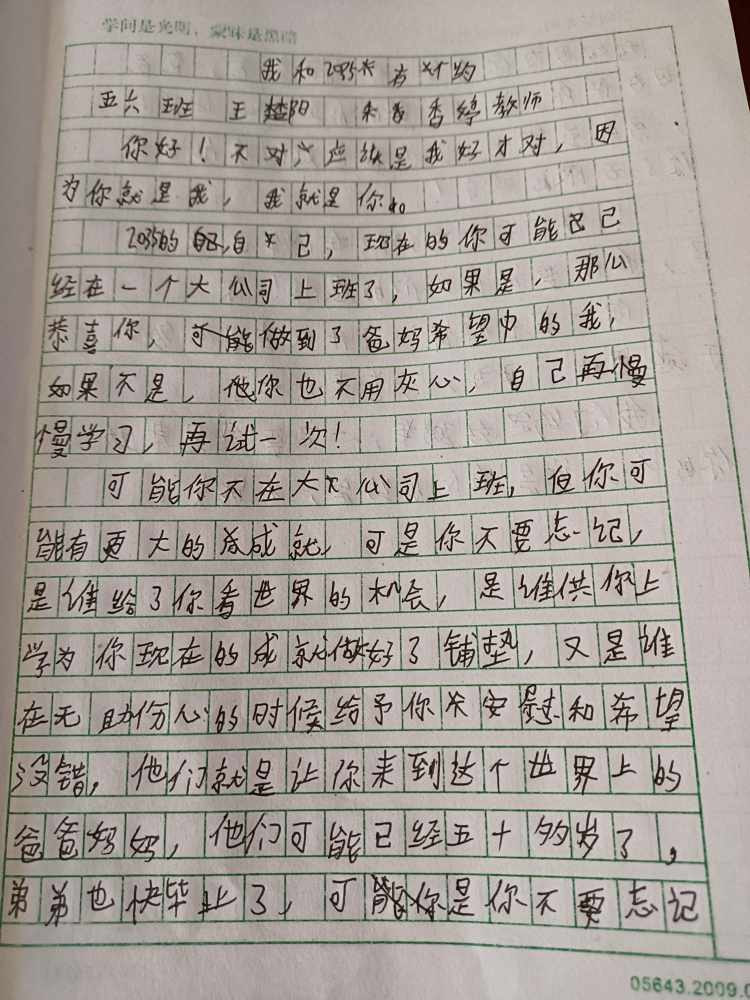 学问是光明，蒙昧是黑暗
我和2035 有个约
五六班 王楚阳 香婷教师
你好！不对，应该是我好才对，因
为你就是我，我就是你。
2035的自己，现在的你可能已
经在一个大公司上班了，如果是，那么
恭喜你，可能做到了爸妈希望中的我，
如果不是，你也不用灰心，自己再慢
慢学习，再试一次！
可能你不在大公司上班，但你可
能有更大的成就，可是你不要忘记，
是谁给了你看世界的机会，是谁供你上
学为你现在的成就做好了铺垫，又是谁
在无助伤心的时候给予你安慰和希望
没错，他们就是让你来到这个世界上的
爸爸妈妈，他们可能已经五十多岁了，
弟弟也快毕业了，可是你不要忘记
05643.2009.0